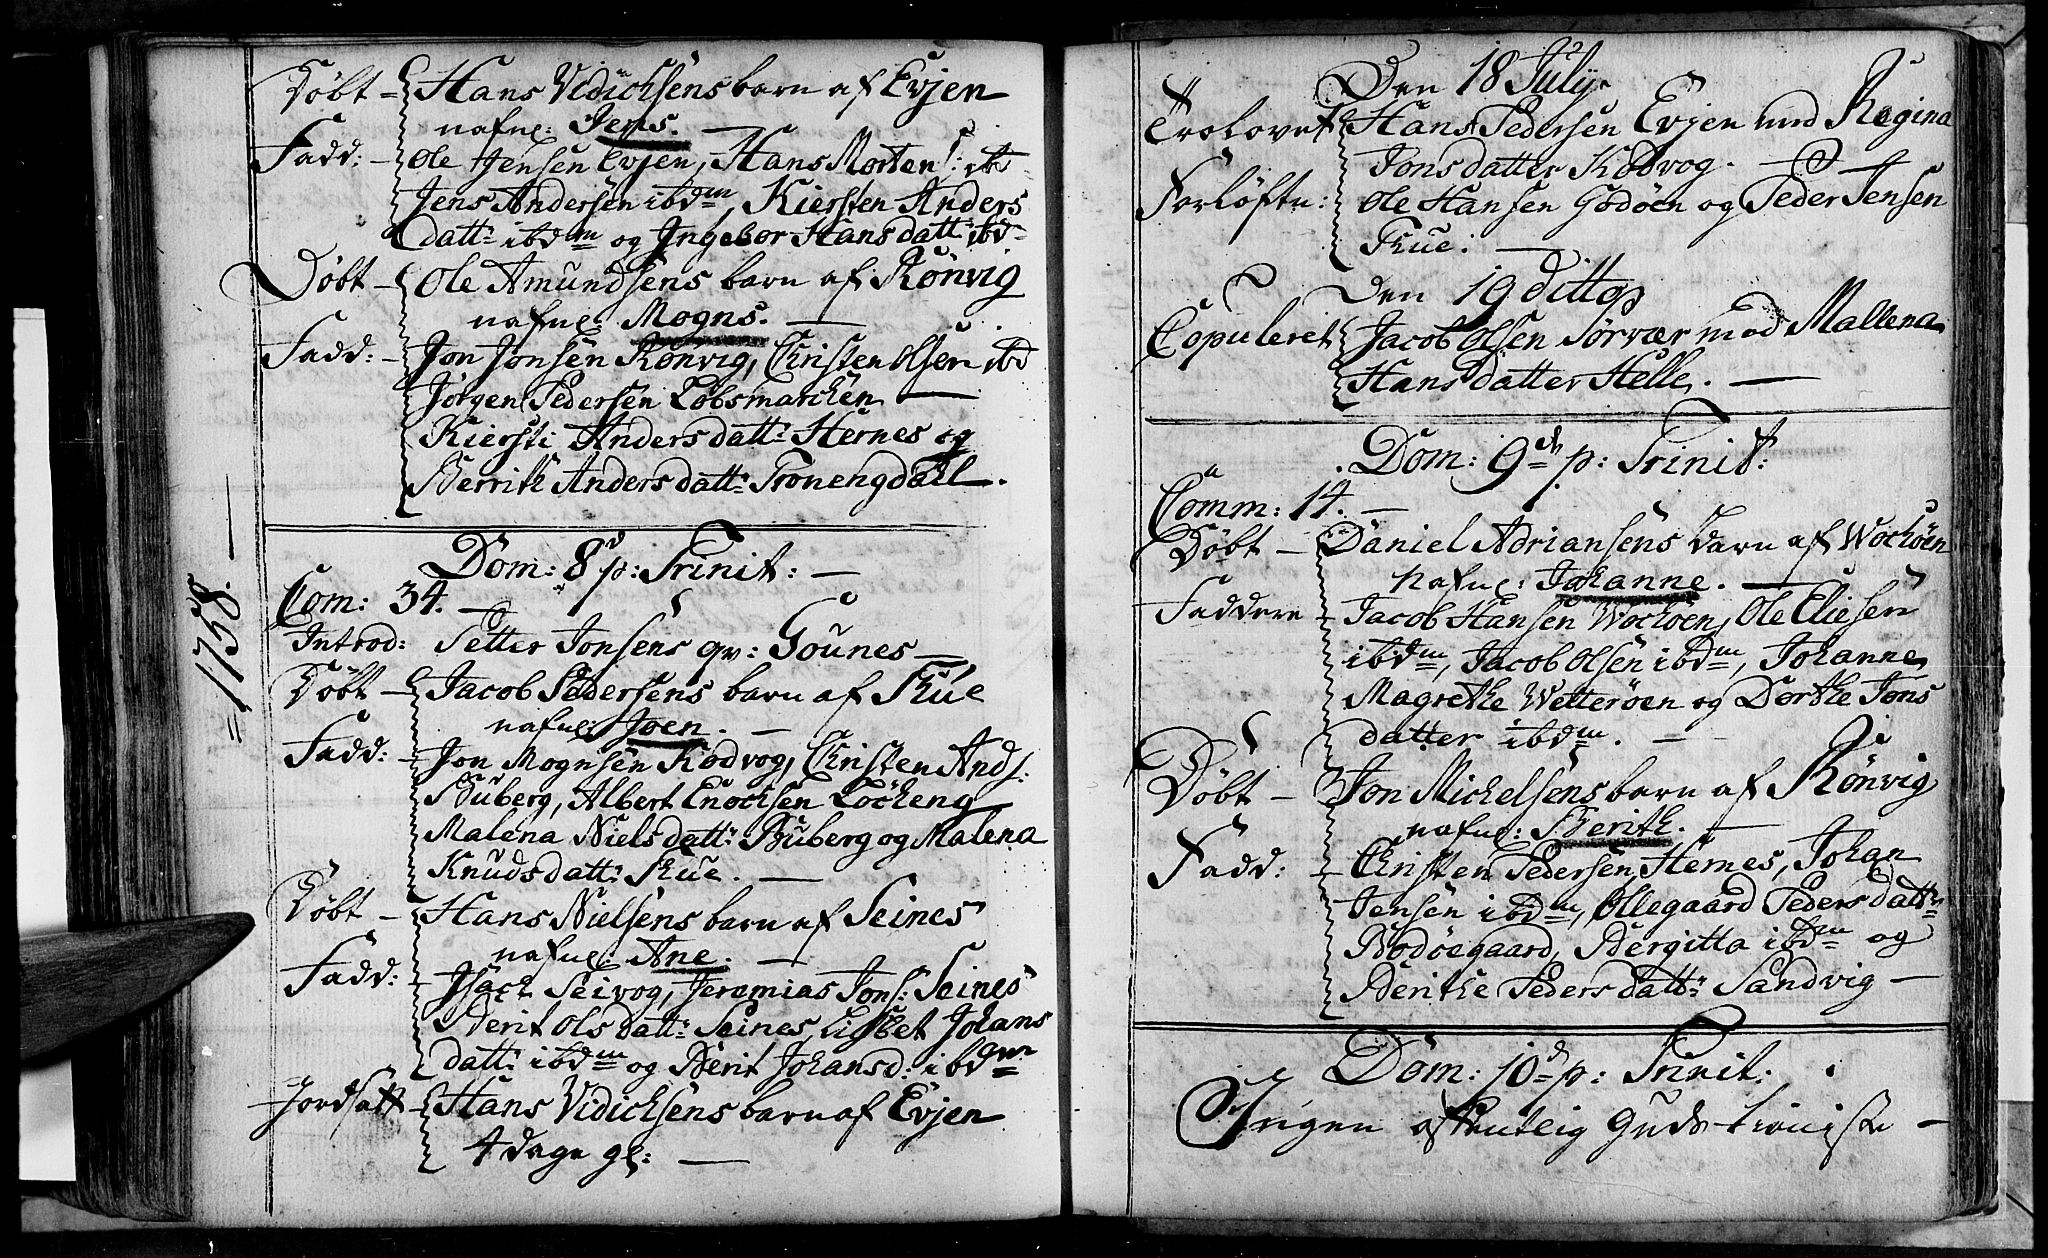 = 1758. —
Døbt – Hans Vidichsens barn af Evjen
nafne: Jens. —
Fadd: – Ole Jensen Evjen, Hans Morten s: ib
Jens Andersen ibdm, Kiersten Anders
datt: ibdm og Ingebor Hans datt: ibd
Døbt – Ole Amundsens barn af Rønvig
nafne: Mogns. —
Fadd: – Jon Jonsen Rønvig, Christen Olsen ibd
Jørgen Pedersen Løbsmarchen —
Kiersti Anders datt: Hernes og
Berrith Anders datt: Tronengdall.
Dom: 8d p: Trinit: —
Com: 34. —
Introd: Petter Jonsens qv: Gounes —
Døbt – Jacob Pedersens barn af Skue
nafne: Joen. —
Fadd: – Jon Mognsen Kodvog, Christen Ands:
Buberg, Albert Enochsen Løcheng
Malena Niels datt: Buberg og Malena
Knuds datt: Skue. —
Døbt – Hans Nielsens barn af Seines
nafne: Ane. —
Fadd: – Isach Seivog, Jeremias Jons: Seines
Berit Ols datt: Seines Lisbet Johans
datt: ibdm og Berit Johansd: ibdm
Jordsatt – Hans Vidichsens barn af Evjen
4 dage gl: —
Den 18 July
Trolovet Hans Pedersen Evjen med Regina
Jonsdatter Kodvog.
Forløftn: Ole Hansen Godøen og Peder Jensen
Skue. —
Den 19 ditto
Copuleret Jacob Olsen Sørvær med Mallena
Hans datter Helle. —
Dom: 9de p: Trinit:
Comm: 14. —
Døbt – Daniel Adriansens barn af Wochøen
nafne: Johanne. —
Faddere – Jacob Hansen Wochøen, Ole Eliesen
ibdm, Jacob Olsen ibdm, Johanne
Magrethe Wetterøen og Dorthe Jons
datter ibdm. —
Døbt – Jon Michelsens barn af Rønvig
nafne: Berith. —
Fadd: – Christen Pedersen Hernes, Johan
Jensen ibdm, Ollegaard Peders datt:
Bodøegaard, Bergitta ibdm og
Berithe Peders datt: Sandvig —
Dom: 10d p: Trinit:
Ingen offentlig Guds tieniste —